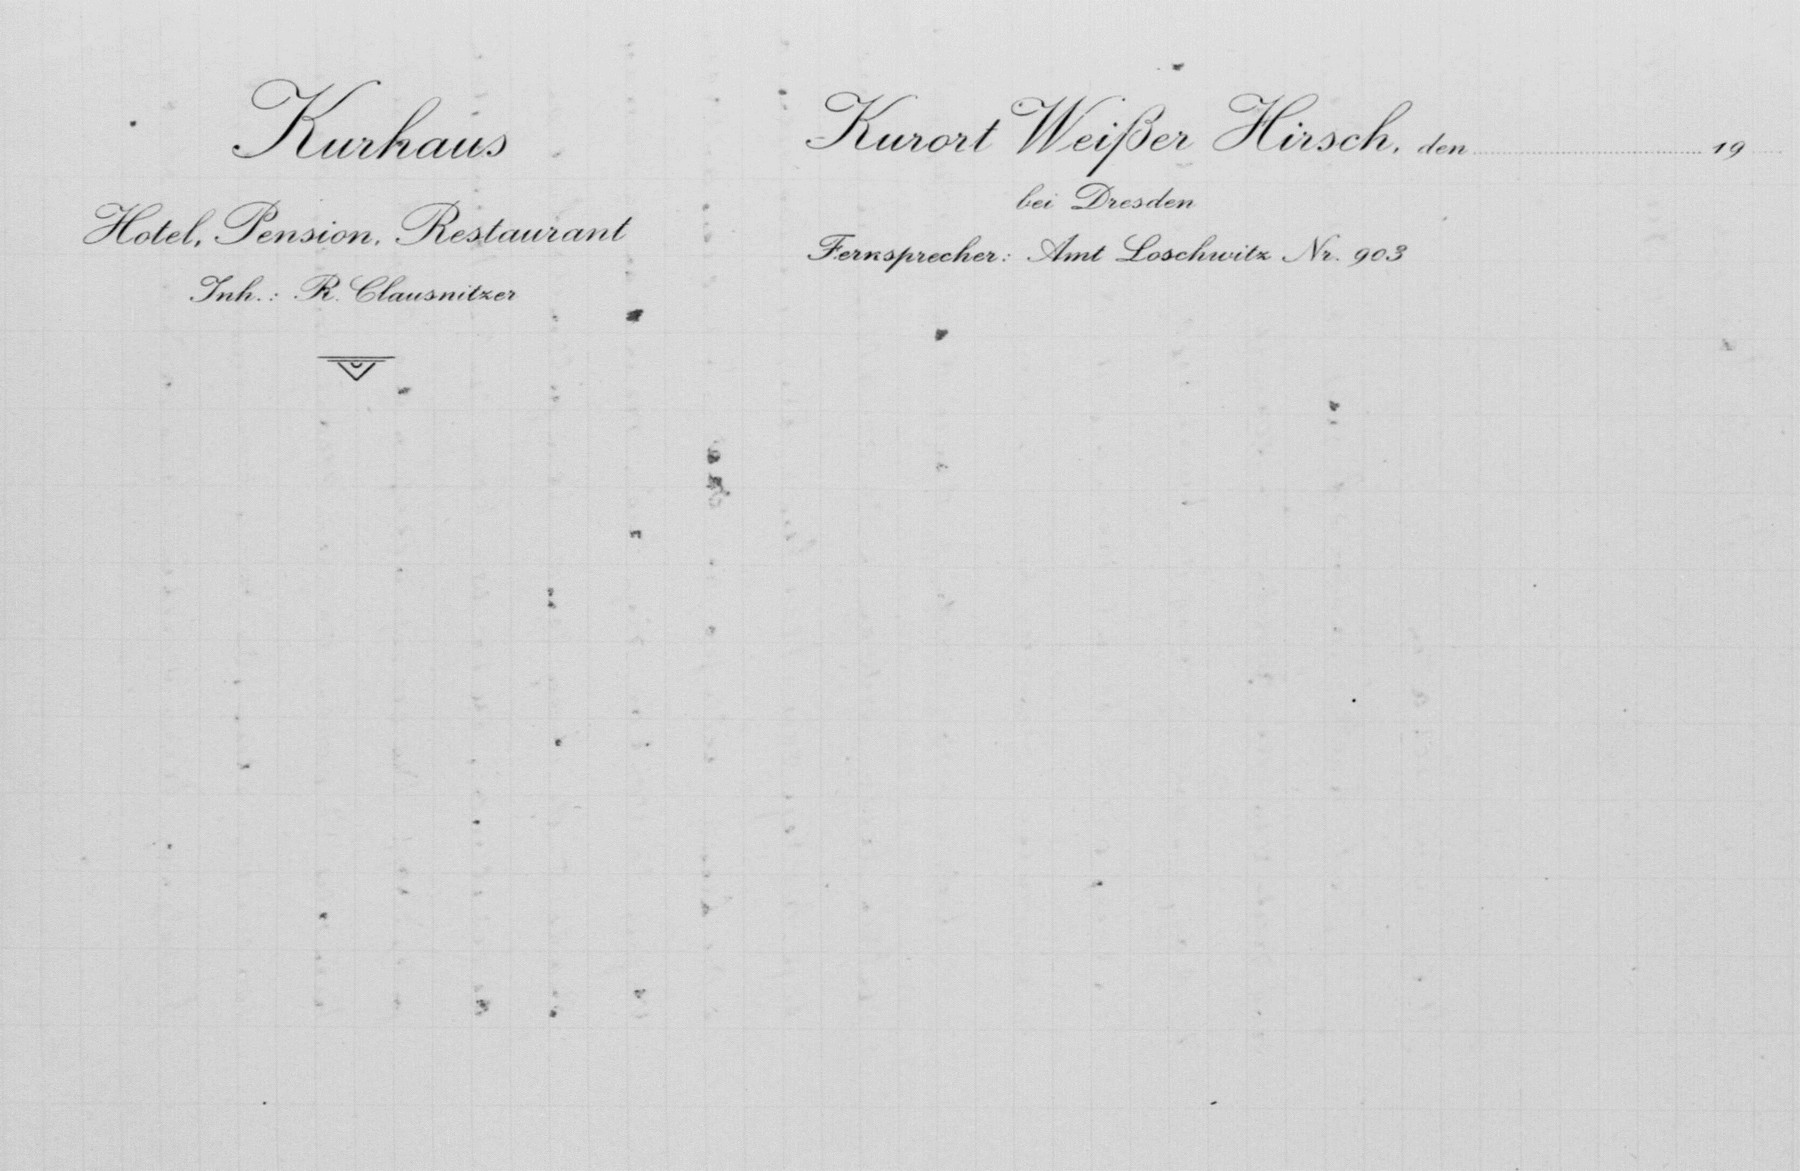 Kurhaus
Hotel, Pension, Restaurant
Inh.: R. Clausnitzer
Kurort Weißer Hirsch, den 19
bei Dresden
Fernsprecher: Amt Loschwitz Nr. 903